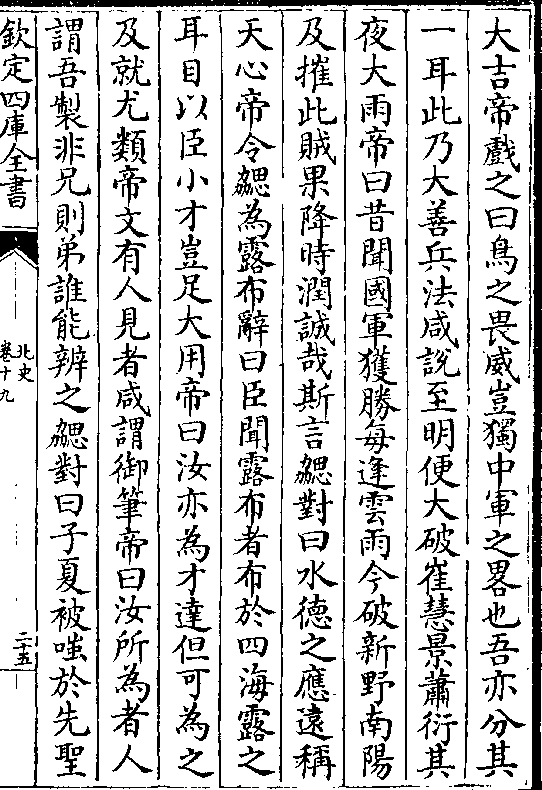 大吉帝戲之曰鳥之畏威豈獨中軍之畧也吾亦分其
一耳此乃大善兵法咸說至明便大破崔慧景蕭衍其
夜大雨帝曰昔聞國軍獲勝每逢雲雨今破新野南陽
及摧此賊果降時潤誠哉斯言勰對曰水德之應遠稱
天心帝令勰為露布辭曰臣聞露布者布於四海露之
耳目以臣小才豈足大用帝曰汝亦為才達但可為之
及就尤類帝文有人見者咸謂御筆帝曰汝所為者人
謂吾製非兄則弟誰能辨之勰對曰子夏被嗤於先聖
欽定四庫全書
北史
卷十九
二十五